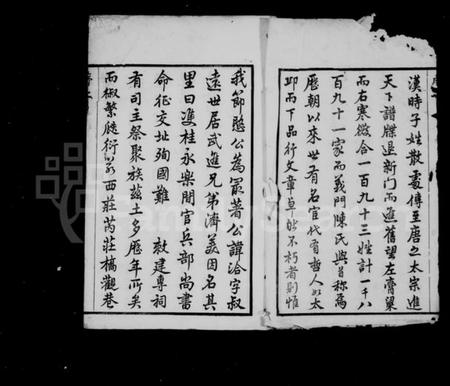 漢時子姓散處傳至唐之太宗進
天下譜牒退新門而進舊望左膏粱
而右寒微合一百九十三姓計一千八
百九十一家而義門陳氏與吾稱焉
歷朝以來世有名官代有哲人如太
邱而下品行文章卓然不朽者則惟
我節愍公為最著公諱洽字叔
遠世居武進兄弟濟美因名其
里曰雙桂永樂間官兵部尚書
命征交址殉國難 敕建專祠
有司主祭聚族茲土多歷年所矣
而椒繁瓞衍若西莊芮莊橋觀巷